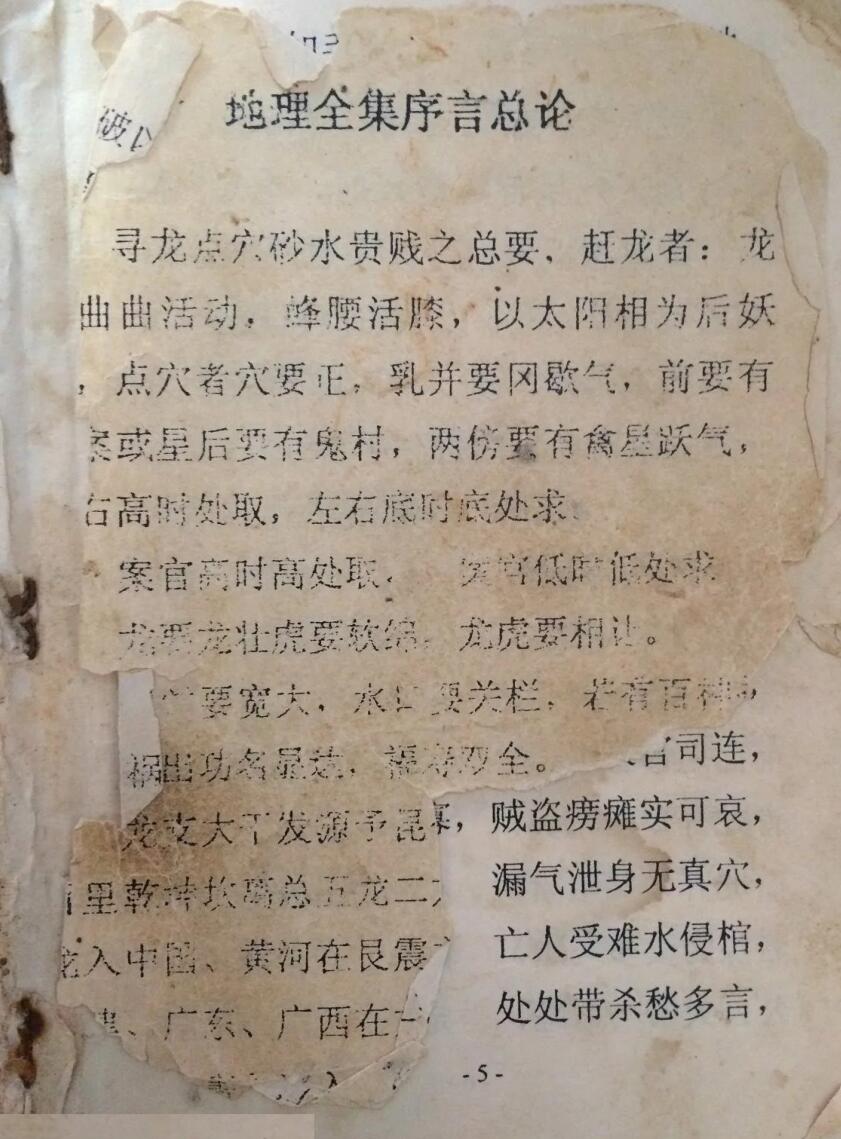 破
地理全集序言总论
寻龙点穴砂水贵贱之总要、赶龙者：龙
曲曲活动，蜂腰活膝，以太阳相为后妖
，点穴者穴要正，乳并要冈歇气，前要有
案或星后要有鬼村，两傍要有禽星跃气，
右高时处取，左右底时底处求
案官高时高处取， 案官低时低处求
龙要龙壮虎要软绵，龙虎要相让。
要宽大，水口要关栏，若有百神
出功名显达，福寿双全。 官司连，
龙支大干发源于昆 贼盗痨瘫实可哀，
里乾 坎离总五龙二 漏气泄身无真穴，
龙入中国、黄河在艮震 亡人受难水侵棺，
、广东、广西在 处处带杀愁多言，
入
- 5 -